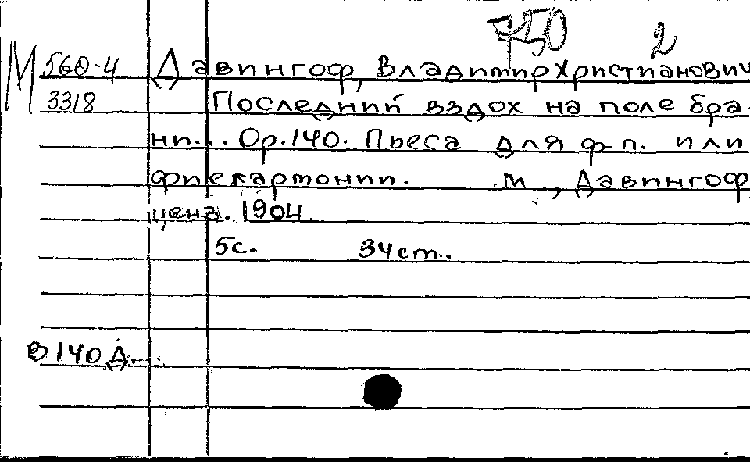 750 2
М 560-4 Давингоф, Владимир Христианович
3318 Последний вздох на поле бра-
ни... Op.140. Пьеса для ф-п. или
фисгармонии. М, Давингоф,
цена. 1904.
5с. 34ст.
В 140 Д